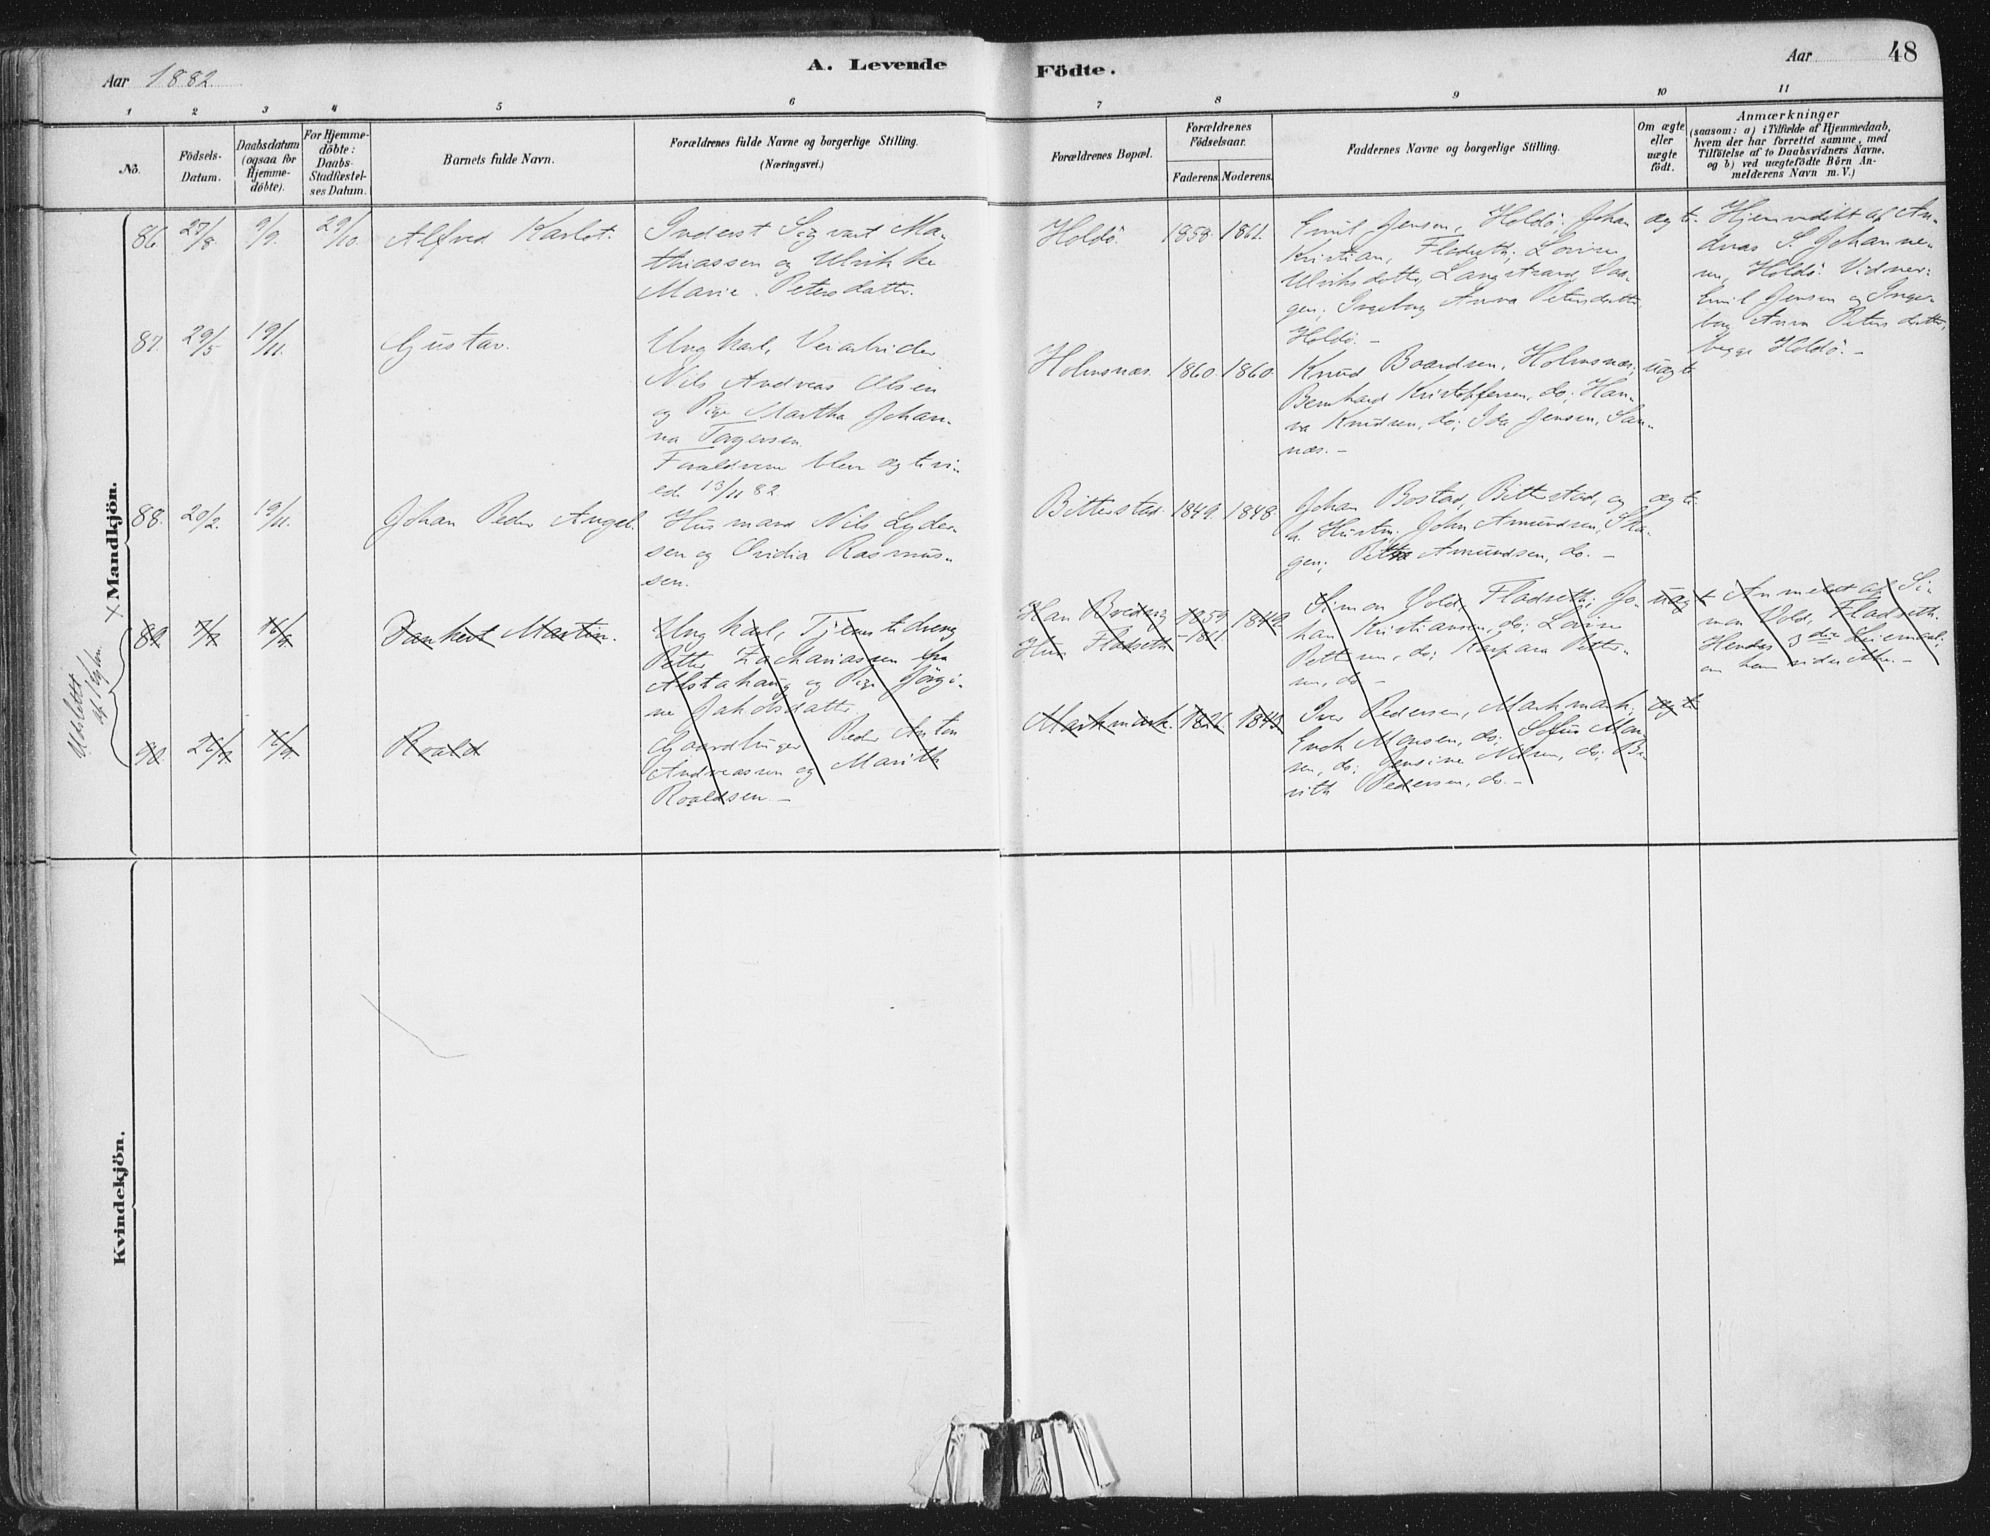 Aar 1882.
A. Levende
Födte.
Aar
48
1 2 3 4 5 6 7 8 9 10 11
No.
Födsels-
Datum.
Daabsdatum
(ogsaa for
Hjemme-
döbte).
For Hjemme-
döbte:
Daabs-
Stadfæstel-
ses Datum.
Barnets fulde Navn.
Forældrenes fulde Navne og borgerlige Stilling.
(Næringsvei.)
Forældrenes Bopæl.
Forældrenes
Födselsaar.
Faderens. Moderens.
Faddernes Navne og borgerlige Stilling.
Om ægte
eller
uægte
födt.
Anmærkninger
(saasom: a) i Tilfælde af Hjemmedaab,
hvem der har forrettet samme, med
Tilföielse af to Daabsvidners Navne.
og b) ved uægtefödte Börn An-
melderens Navn m. V.)
Mandkjön.
86. 27/8 9/9. 29/10. Alfred Karlot.
Inderst Sigvart Ma-
thiassen og Ulrikke
Marie Petersdatter.
Holdö. 1858. 1861.
Emil Jensen, Holdö. Johan
Kristian, Fladseth; Lovise
Ulriksdatter, Langstrand, Vaa-
gen; Ingeborg Anna Petersdatter
Holdö. -
ægte.
Hjemmedöbt af An-
dreas S. Johanne-
sen, Holdö. Vidner:
Emil Jensen og Inge-
borg Anna Petersdatter,
begge Holdö. -
87. 29/5 19/11. Gustav.
Ungkarl, Veiarbeider
Nils Andreas Olsen
og Pige Martha Johan-
na Torgersen.
Forældrene blev ægtevi-
ede 13/11 82
Holmsnæs. 1860. 1860.
Knud Baardsen, Holmsnæs;
Bernhard Kristoffersen, do; Han-
na Knudsen, do; Ida Jensen, San-
næs. -
uægte
88. 20/2. 19/11. Johan Peder Angel.
Husmand Nils Lyder-
sen og Ovidia Rasmus-
sen.
Bitterstad. 1849. 1848.
Johan Bostad, Bitterstad, og
h. Hustru; John Amundsen, Ska-
gen; Petra Amundsen, do. -
ægte
Udslettet
89. 7/7 16/9 Dankert Martin.
Ungkarl, Tjenestedreng
Petter Zachariassen fra
Alstahaug og Pige Jörgi-
ne Jakobsdatter
Han
Hun Fladseth
1859 1842.
-1861.
Simon Vold, Fladseth; Jo-
han Kristiansen, do; Lovise
Pettersen, do; Kaspara Petter-
sen, do -
uægte
Anmeldt af Si-
mon Vold, Fladseth.
Hendes 3die Leiermaal;
90. 26/7 16/9. Roald
Gaardbruger Peder Anton
Andreassen og Marith
Roaldsen. -
Markmark. 1826 1843.
Iver Pedersen, Markmark;
Enok Monsen, do; Sofus Mon-
sen, do; Jensine Nilsen, do; Be-
rith Pedersen, do. -
ægte.
Kvindekjön.